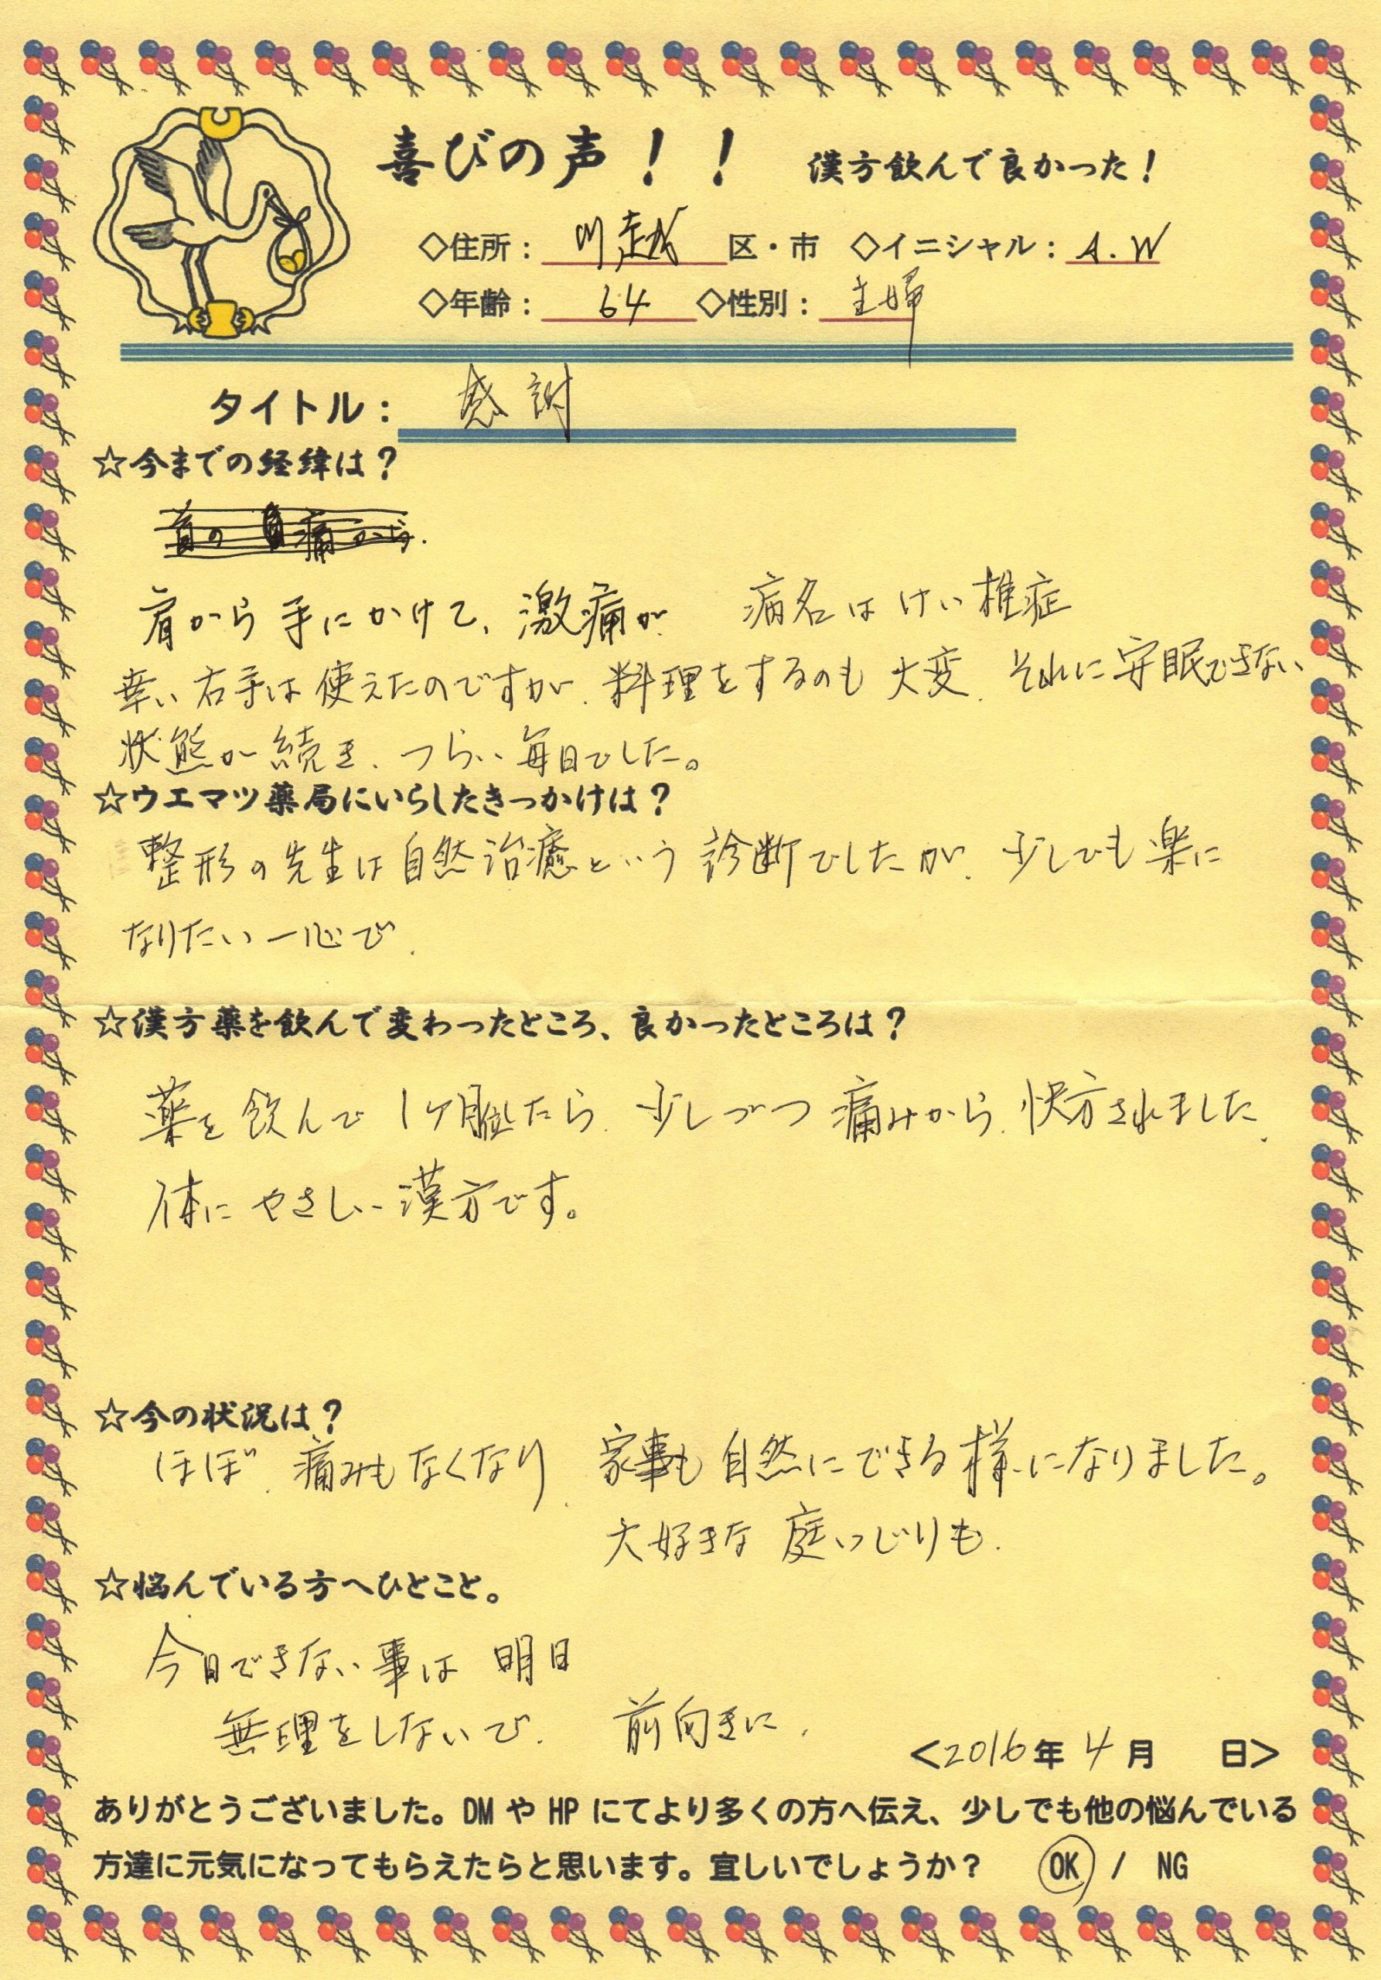 喜びの声！！ 漢方飲んで良かった！
◇住所：川越 区・市 ◇イニシャル：A.W
◇年齢：64 ◇性別：主婦
タイトル：感謝
☆今までの経緯は？
肩から手にかけて、激痛が 病名はけい椎症
幸い右手は使えたのですが、料理をするのも大変、それに安眠できない
状態が続き、つらい毎日でした。
☆ウエマツ薬局にいらしたきっかけは？
整形の先生は自然治癒という診断でしたが、少しでも楽に
なりたい一心で、
☆漢方薬を飲んで変わったところ、良かったところは？
薬を飲んで1ケ月位したら、少しづつ痛みから、快方されました、
体にやさしい漢方です。
☆今の状況は？
ほぼ、痛みもなくなり、家事も自然にできる様になりました。
大好きな庭いじりも、
☆悩んでいる方へひとこと。
今日できない事は明日
無理をしないで、前向きに、
＜2016年4月 日＞
ありがとうございました。DMやHPにてより多くの方へ伝え、少しでも他の悩んでいる
方達に元気になってもらえたらと思います。宜しいでしょうか？ OK / NG